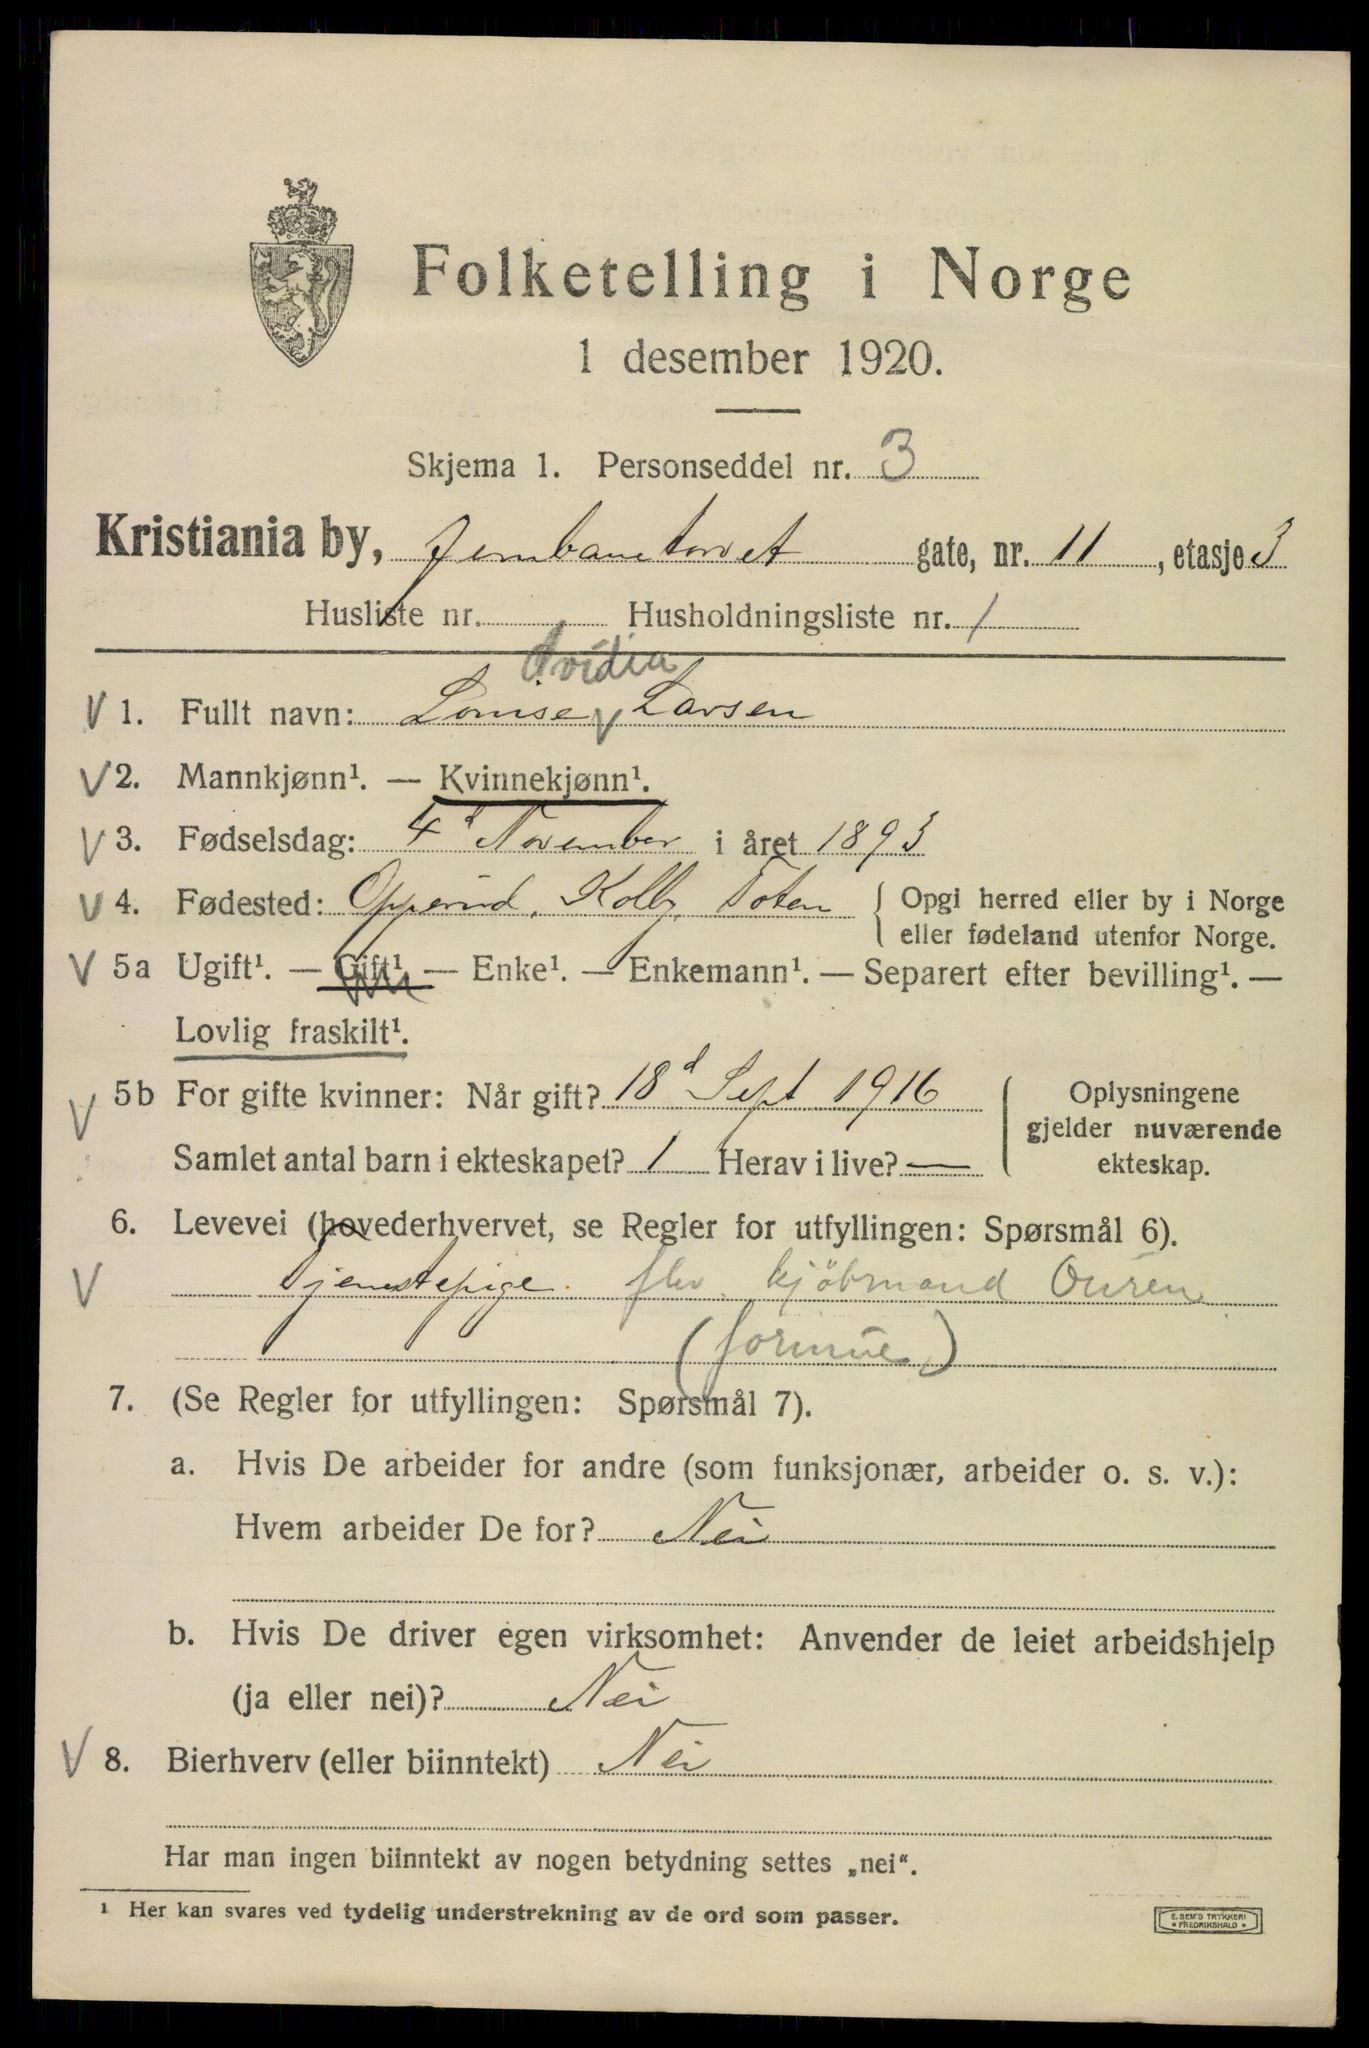 Folketelling i Norge
1 desember 1920.
Skjema 1. Personseddel nr. 3
Kristiania by, Jernbanetorvet gate, nr. 11, etasje 3
Husliste nr. Husholdningsliste nr. 1
Ovidia
V 1. Fullt navn: Lovise V Larsen
V 2. Mannkjønn¹. — Kvinnekjønn¹.
V 3. Fødselsdag: 4d November i året 1893
V 4. Fødested: Opperud, Kolby, Toten { Opgi herred eller by i Norge
eller fødeland utenfor Norge.
V 5a Ugift¹. — Gift¹. — Enke¹. — Enkemann¹. — Separert efter bevilling¹. —
Lovlig fraskilt¹.
V 5b For gifte kvinner: Når gift? 18d Sept 1916
Samlet antal barn i ekteskapet? 1 Herav i live? —
Oplysningene
gjelder nuværende
ekteskap.
6. Levevei (hovederhvervet, se Regler for utfyllingen: Spørsmål 6).
V Tjenestepige. kjöbmand Ouren
(formue)
7. (Se Regler for utfyllingen: Spørsmål 7).
a. Hvis De arbeider for andre (som funksjonær, arbeider o. s. v.):
Hvem arbeider De for? Nei
b. Hvis De driver egen virksomhet: Anvender de leiet arbeidshjelp
(ja eller nei)? Nei
V 8. Bierhverv (eller biinntekt) Nei
Har man ingen biinntekt av nogen betydning settes „nei“.
¹ Her kan svares ved tydelig understrekning av de ord som passer.
E. SEM'S TRYKKERI
FREDRIKSHALD